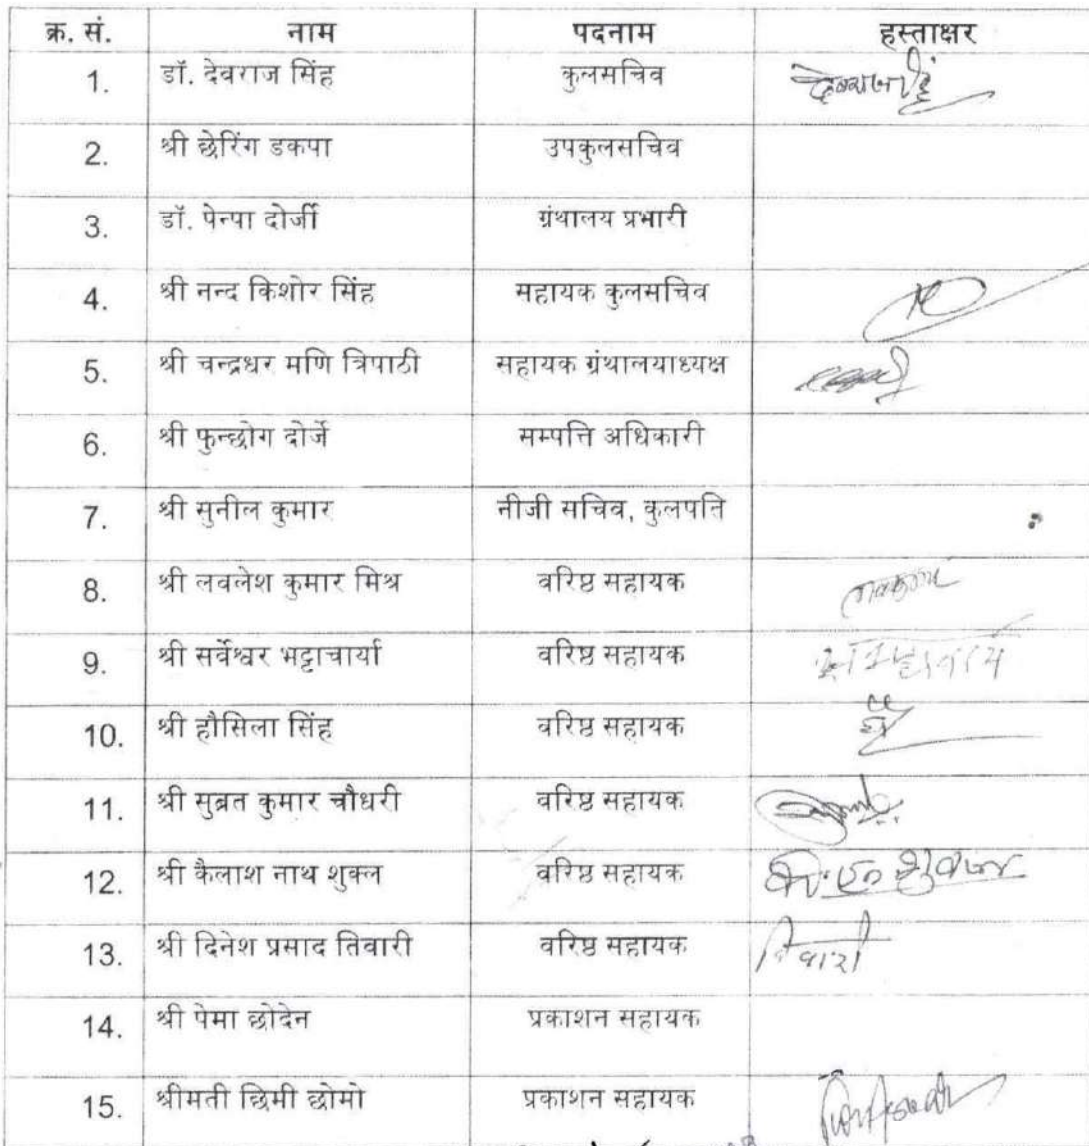 क्र. सं. नाम पदनाम हस्ताक्षर
1. डॉ. देवराज सिंह कुलसचिव देवराज सिंह
2. श्री छेरिंग डकपा उपकुलसचिव
3. डॉ. पेन्पा दोर्जी ग्रंथालय प्रभारी
4. श्री नन्द किशोर सिंह सहायक कुलसचिव
5. श्री चन्द्रधर मणि त्रिपाठी सहायक ग्रंथालयाध्यक्ष
6. श्री फुन्छोग दोर्जे सम्पत्ति अधिकारी
7. श्री सुनील कुमार नीजी सचिव, कुलपति
8. श्री लवलेश कुमार मिश्र वरिष्ठ सहायक
9. श्री सर्वेश्वर भट्टाचार्या वरिष्ठ सहायक
10. श्री हौसिला सिंह वरिष्ठ सहायक
11. श्री सुब्रत कुमार चौधरी वरिष्ठ सहायक
12. श्री कैलाश नाथ शुक्ल वरिष्ठ सहायक के. एन शुक्ल
13. श्री दिनेश प्रसाद तिवारी वरिष्ठ सहायक तिवारी
14. श्री पेमा छोदेन प्रकाशन सहायक
15. श्रीमती छिमी छोमो प्रकाशन सहायक